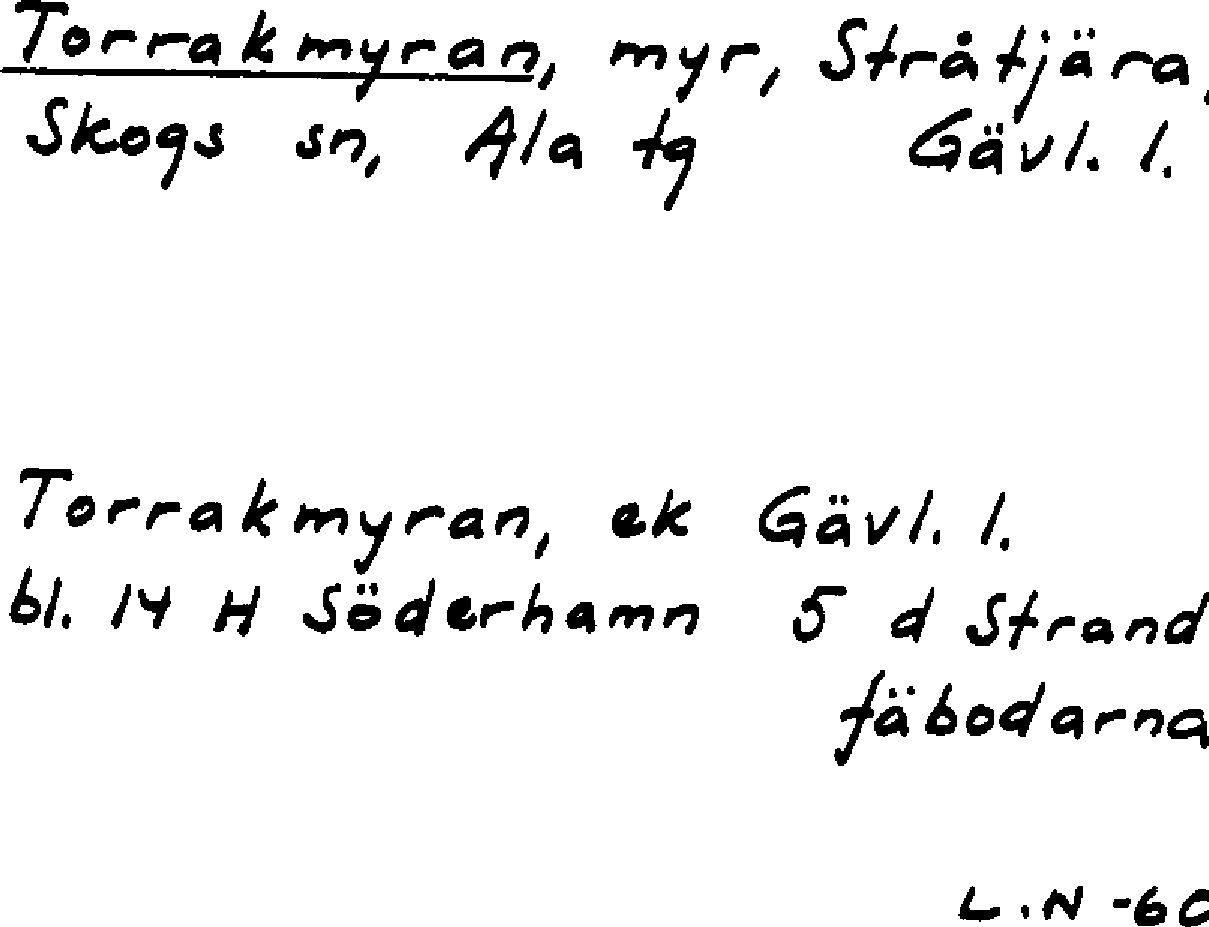 Torrakmyran, myr, Stråtjära,
Skogs sn, Ala tg Gävl. l.
Torrakmyran, ek Gävl. l.
bl. 14 H Söderhamn 5 d Strand
fäbodarna
L.N -60